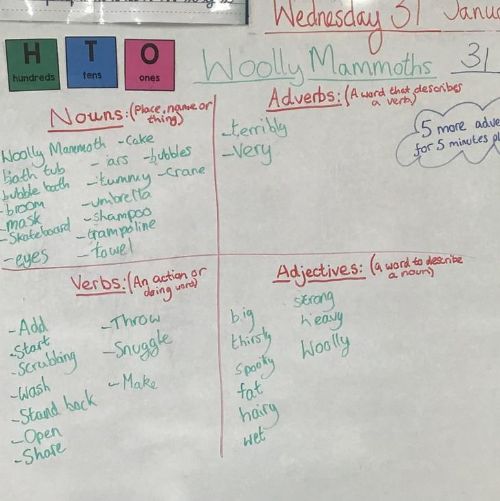 Wednesday 31
H T O
hundreds tens ones
Woolly Mammoths
31
Nouns: (Place, name or thing)
Woolly Mammoth - cake
bath tub - jars - bubbles
bubble bath - tummy - crane
- broom - umbrella
- mask - shampoo
- Skateboard - trampoline
- eyes - towel
Adverbs: (A word that describes a verb)
- terribly
- Very
5 more adve
for 5 minutes pl
Verbs: (An action or doing word)
- Add - Throw
- Start - Snuggle
- Scrubbing
- Wash - Make
- Stand back
- Open
- Share
Adjectives: (a word to describe a noun)
big strong
thirsty heavy
spooky Woolly
fat
hairy
wet